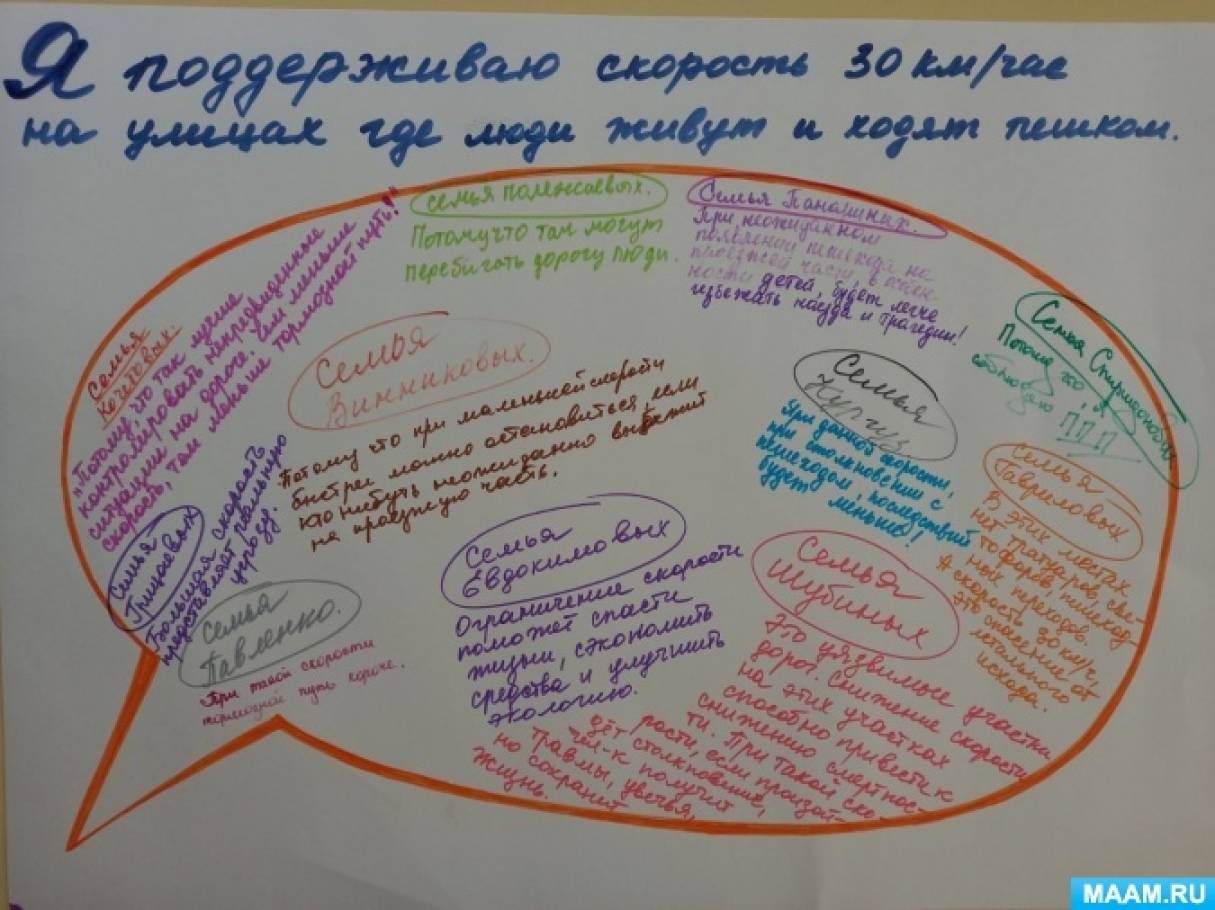 Я поддерживаю скорость 30 км/час
на улицах где люди живут и ходят пешком.
семья Кочетовых.
"Потому, что так лучше
контролировать непредвиденные
ситуации на дороге. Чем меньше
скорость, тем меньше тормозной путь!"
семья полежаевых.
Потомучто там могут
перебигать дорогу люди.
Семья Панашних.
При неожиданном
появлении пешехода на
проезжей части, в особен-
ности детей, будет легче
избежать наезда и трагедии!
Семья
Потому что, я
соблюдаю ППП
Семья
Винниковых.
Потому что при маленькой скорости
быстрее можно остановиться, если
кто нибуть неожиданно выбежит
на проезжую часть.
Семья
Нургуз
При данной скорости,
при столкновении с
пешеходом, последствий
будет меньше!
семья
Гавриловых
В этих местах
нет тратуаров, све-
тофоров, пишеход-
ных переходов.
А скорость 30 км/ч,
это спасение от
летального
исхода.
Семья
Грищаевых
Большая скорость
представляет реальную
угрозу.
семья
Павленко.
При такой скорости
тормозной путь короче.
семья
Евдокимовых
Ограничение скорости
поможет спасти
жизни, сэкономить
средства и улучшить
экологию.
семья
Шубиных
Это уязвимые участки
дорог. Снижение скорости
на этих участках
способно привести к
снижению смертнос-
ти. При такой ско-
рости, если произой-
дёт столкновение,
чел-к получит
травмы, увечья,
но сохранит
жизнь.
MAAM.RU